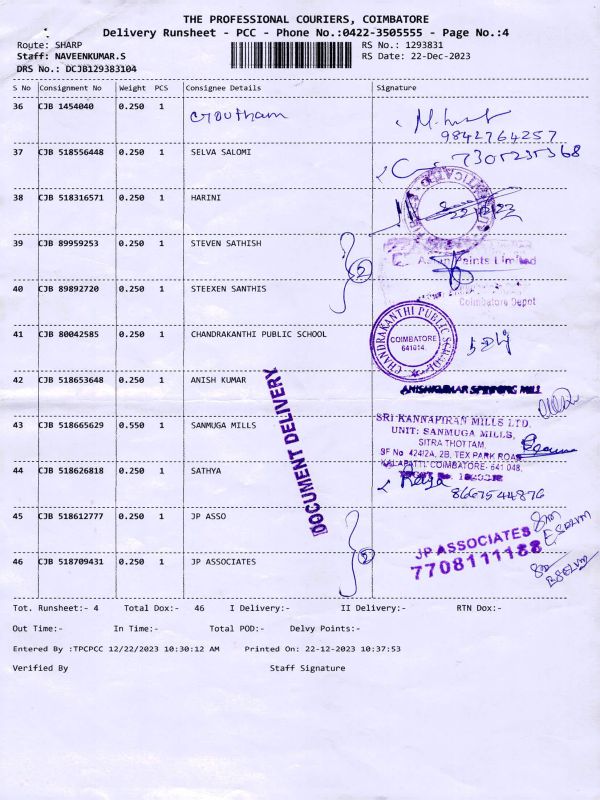 THE PROFESSIONAL COURIERS, COIMBATORE
Delivery Runsheet - PCC - Phone No.:0422-3505555 - Page No.:4
Route: SHARP RS No.: 1293831
Staff: NAVEENKUMAR.S RS Date: 22-Dec-2023
DRS No.: DCJB129383104
S No Consignment No Weight PCS Consignee Details Signature
36 CJB 1454040 0.250 1 Goutham
9842764257
37 CJB 518556448 0.250 1 SELVA SALOMI 7305235368
38 CJB 518316571 0.250 1 HARINI
39 CJB 89959253 0.250 1 STEVEN SATHISH
2 Asian Paints Limited
40 CJB 89892720 0.250 1 STEEXEN SANTHIS
Coimbatore Depot
CHANDRAKANTHI PUBLIC SCHOOL
COIMBATORE
641014
41 CJB 80042585 0.250 1 CHANDRAKANTHI PUBLIC SCHOOL
42 CJB 518653648 0.250 1 ANISH KUMAR
ANISHKUMAR SPINNING MILL
DOCUMENT DELIVERY
43 CJB 518665629 0.550 1 SANMUGA MILLS
SRI KANNAPIRAN MILLS LTD.
UNIT: SANMUGA MILLS,
SITRA THOTTAM,
SF No 424/2A, 2B, TEX PARK ROAD
KALAPATTI, COIMBATORE- 641 048.
44 CJB 518626818 0.250 1 SATHYA
Raja
8667544876
45 CJB 518612777 0.250 1 JP ASSO
JP ASSOCIATES
7708111188
46 CJB 518709431 0.250 1 JP ASSOCIATES
2
Tot. Runsheet:- 4 Total Dox:- 46 I Delivery:- II Delivery:- RTN Dox:-
Out Time:- In Time:- Total POD:- Delvy Points:-
Entered By :TPCPCC 12/22/2023 10:30:12 AM Printed On: 22-12-2023 10:37:53
Verified By Staff Signature